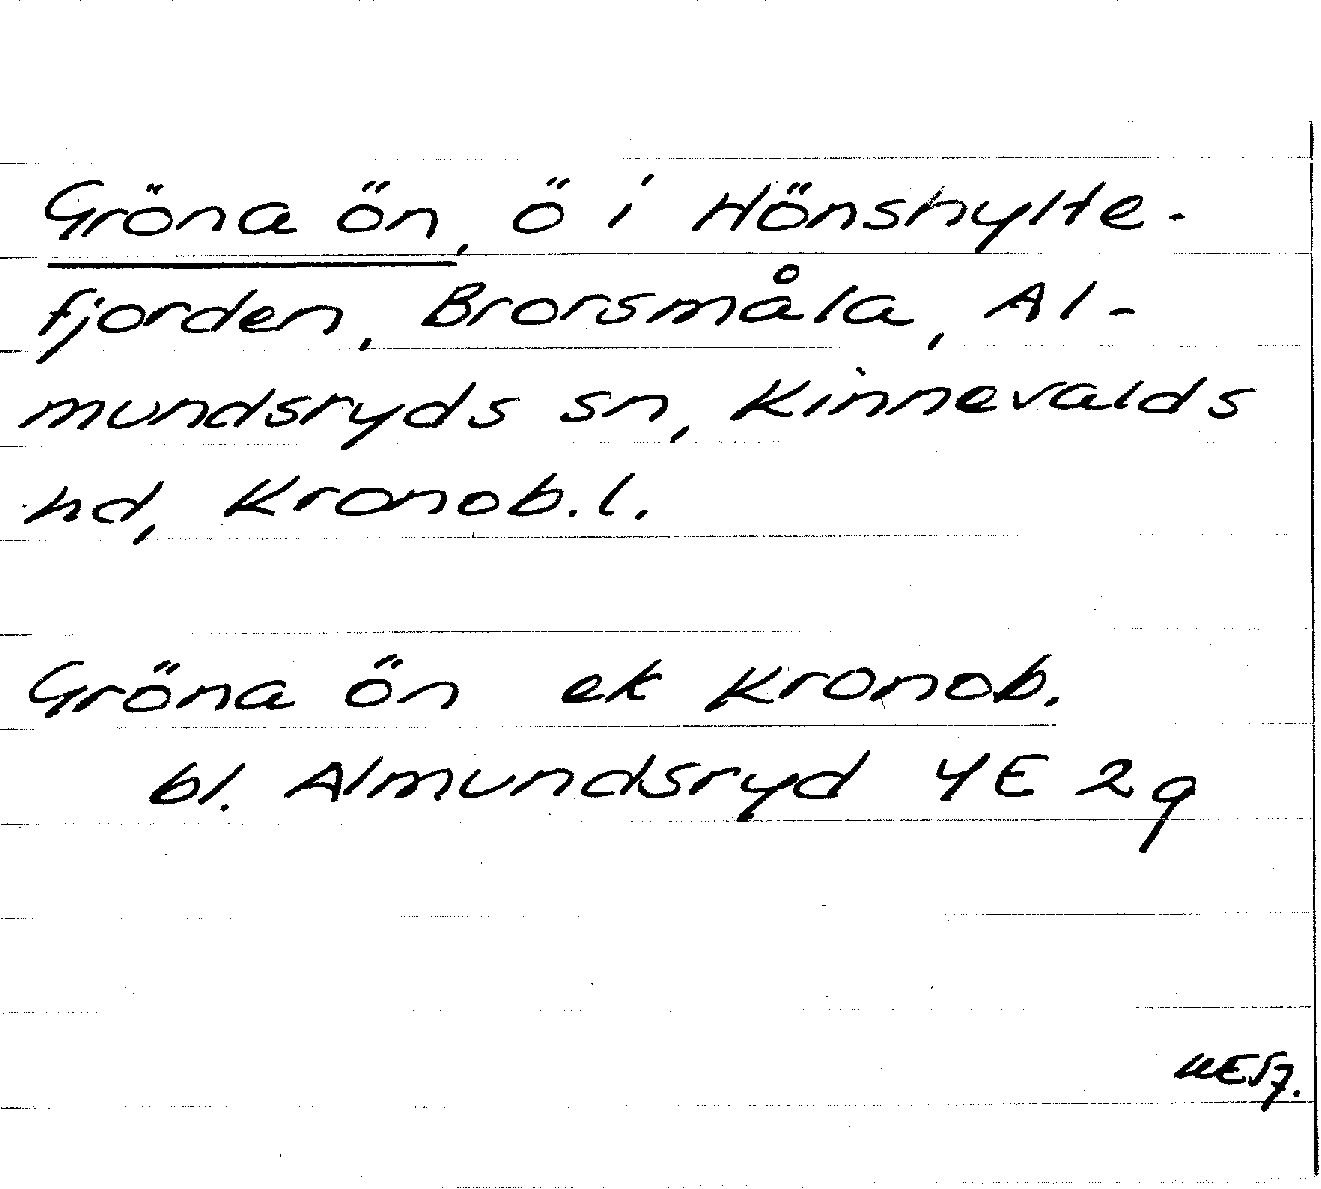 Gröna ön, ö i Hönshylte-
fjorden, Brorsmåla, Al-
mundsryds sn, Kinnevalds
hd, Kronob. l.
Gröna ön ek Kronob.
bl. Almundsryd 4E 2g